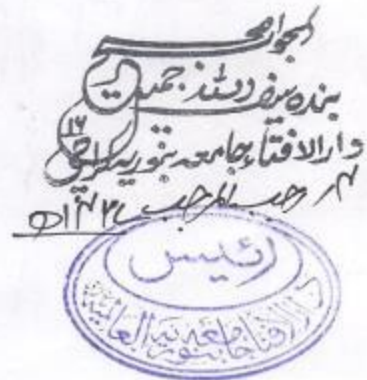 الجواب صحیح
بندہ سیف اللہ جمیل
دارالافتاء جامعہ بنوریہ کراچی ۱۶
رجب المرجب
رئیس
دارالافتا جامعہ بنوریہ العالمیة